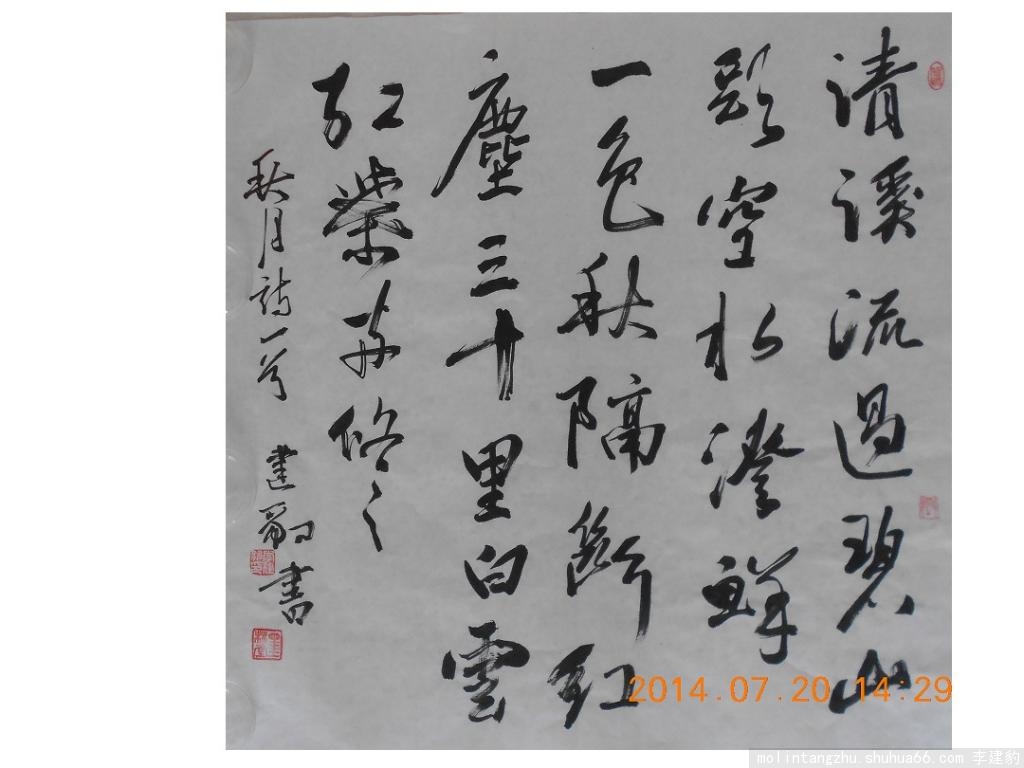 清溪流過碧山
頭空水澄鮮
一色秋隔斷紅
塵三十里白雲
紅葉兩悠々
秋月詩一首 建豹書
2014.07.20 14:29
molintangzhu.shuhua66.com 李建豹